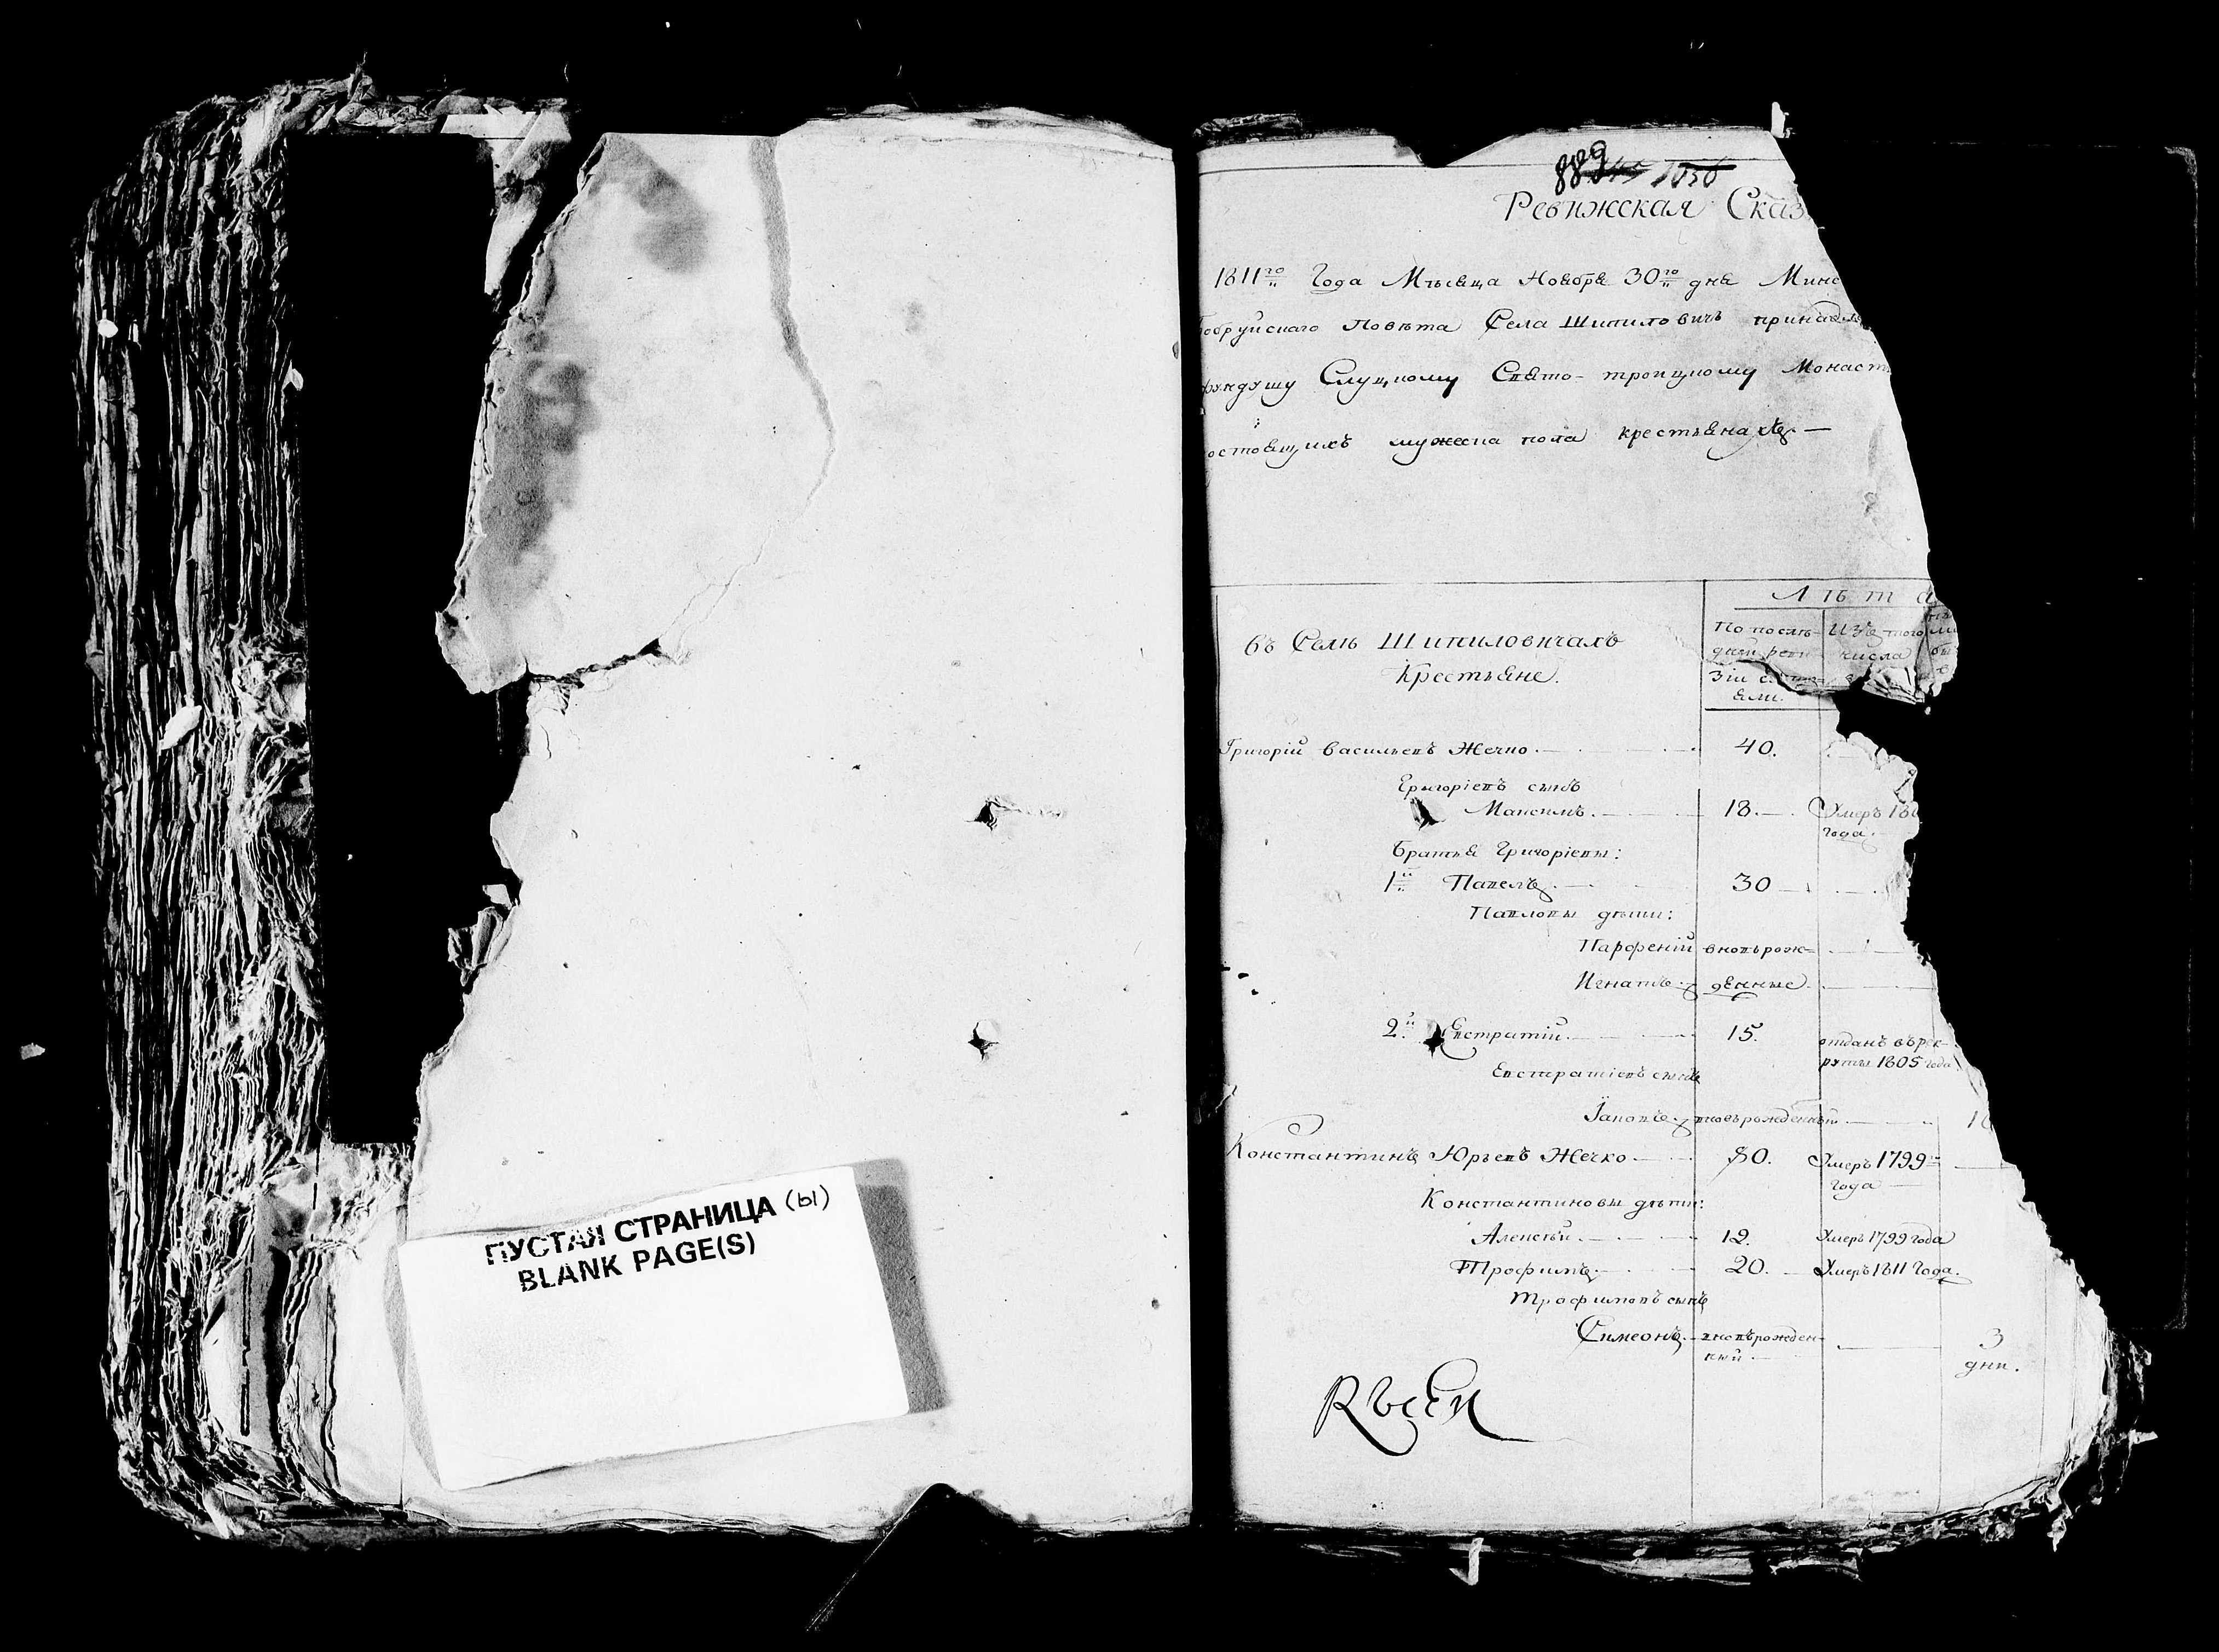 ПУСТАЯ СТРАНИЦА (ы)
BLANK PAGE(S)
889
Ревижская Сказ
1811го Года Мѣсяца Ноября 30го дня Минс
обруйскаго Повѣта Села Шипиловичъ принадл
фундушу Слуцкому Свято-троицкому Монаст
остоящихъ мужеска пола крестьянахъ —
Лѣта
въ Селѣ Шипиловичахъ
Крестьяне.
По послѣ-
дней реви-
зіи
яли.
Изъ того
числа
Григорій васильевъ Жечко 40.
Григоріевъ сынъ
Максимъ. 18. Умеръ 18
года.
Братья Григоріевы:
1й Павелъ 30
Павловы дѣти:
Парфеній вновьрож-
Игнатъ денные.
2й Евстратій. 15. отданъ въ рек-
руты 1805 года
Евстратіевъ сынъ
Іаковъ вновьрожденный
Константинъ Юрьевъ Жечко 80. Умеръ 1799
года
Константиновы дѣти:
Алексѣй. 12. Умеръ 1799 года
Трофимъ 20. Умеръ 1811 Года.
трофимовъ сынъ
Симеонъ вновьрожден-
ный 3
дни.